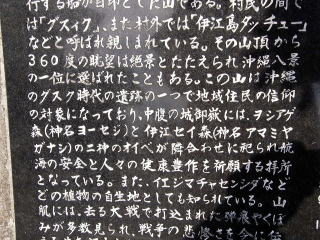 行する船が目印とした山である。村民の間で
は「グスィク」、また村外では「伊江島タッチュー」
などと呼ばれ親しまれている。その山頂から
360度の眺望は絶景とたたえられ沖縄八景
の一位に選ばれたこともある。この山は沖縄
のグスク時代の遺跡の一つで地域住民の信仰
の対象になっており、中腹の城御嶽には、ヨシアゲ
森(神名ヨーセジ)と伊江セイ森(神名アマミヤ
ガナシ)の二神のオイベが隣合わせに祀られ航
海の安全と人々の健康豊作を祈願する拝所
となっている。また、イエジマチャセンシダなど
どの植物の自生地としても知られている。山
肌には、去る大戦で打込まれた弾痕やくぼ
みが多数見られ、戦争の悲惨さを今に伝